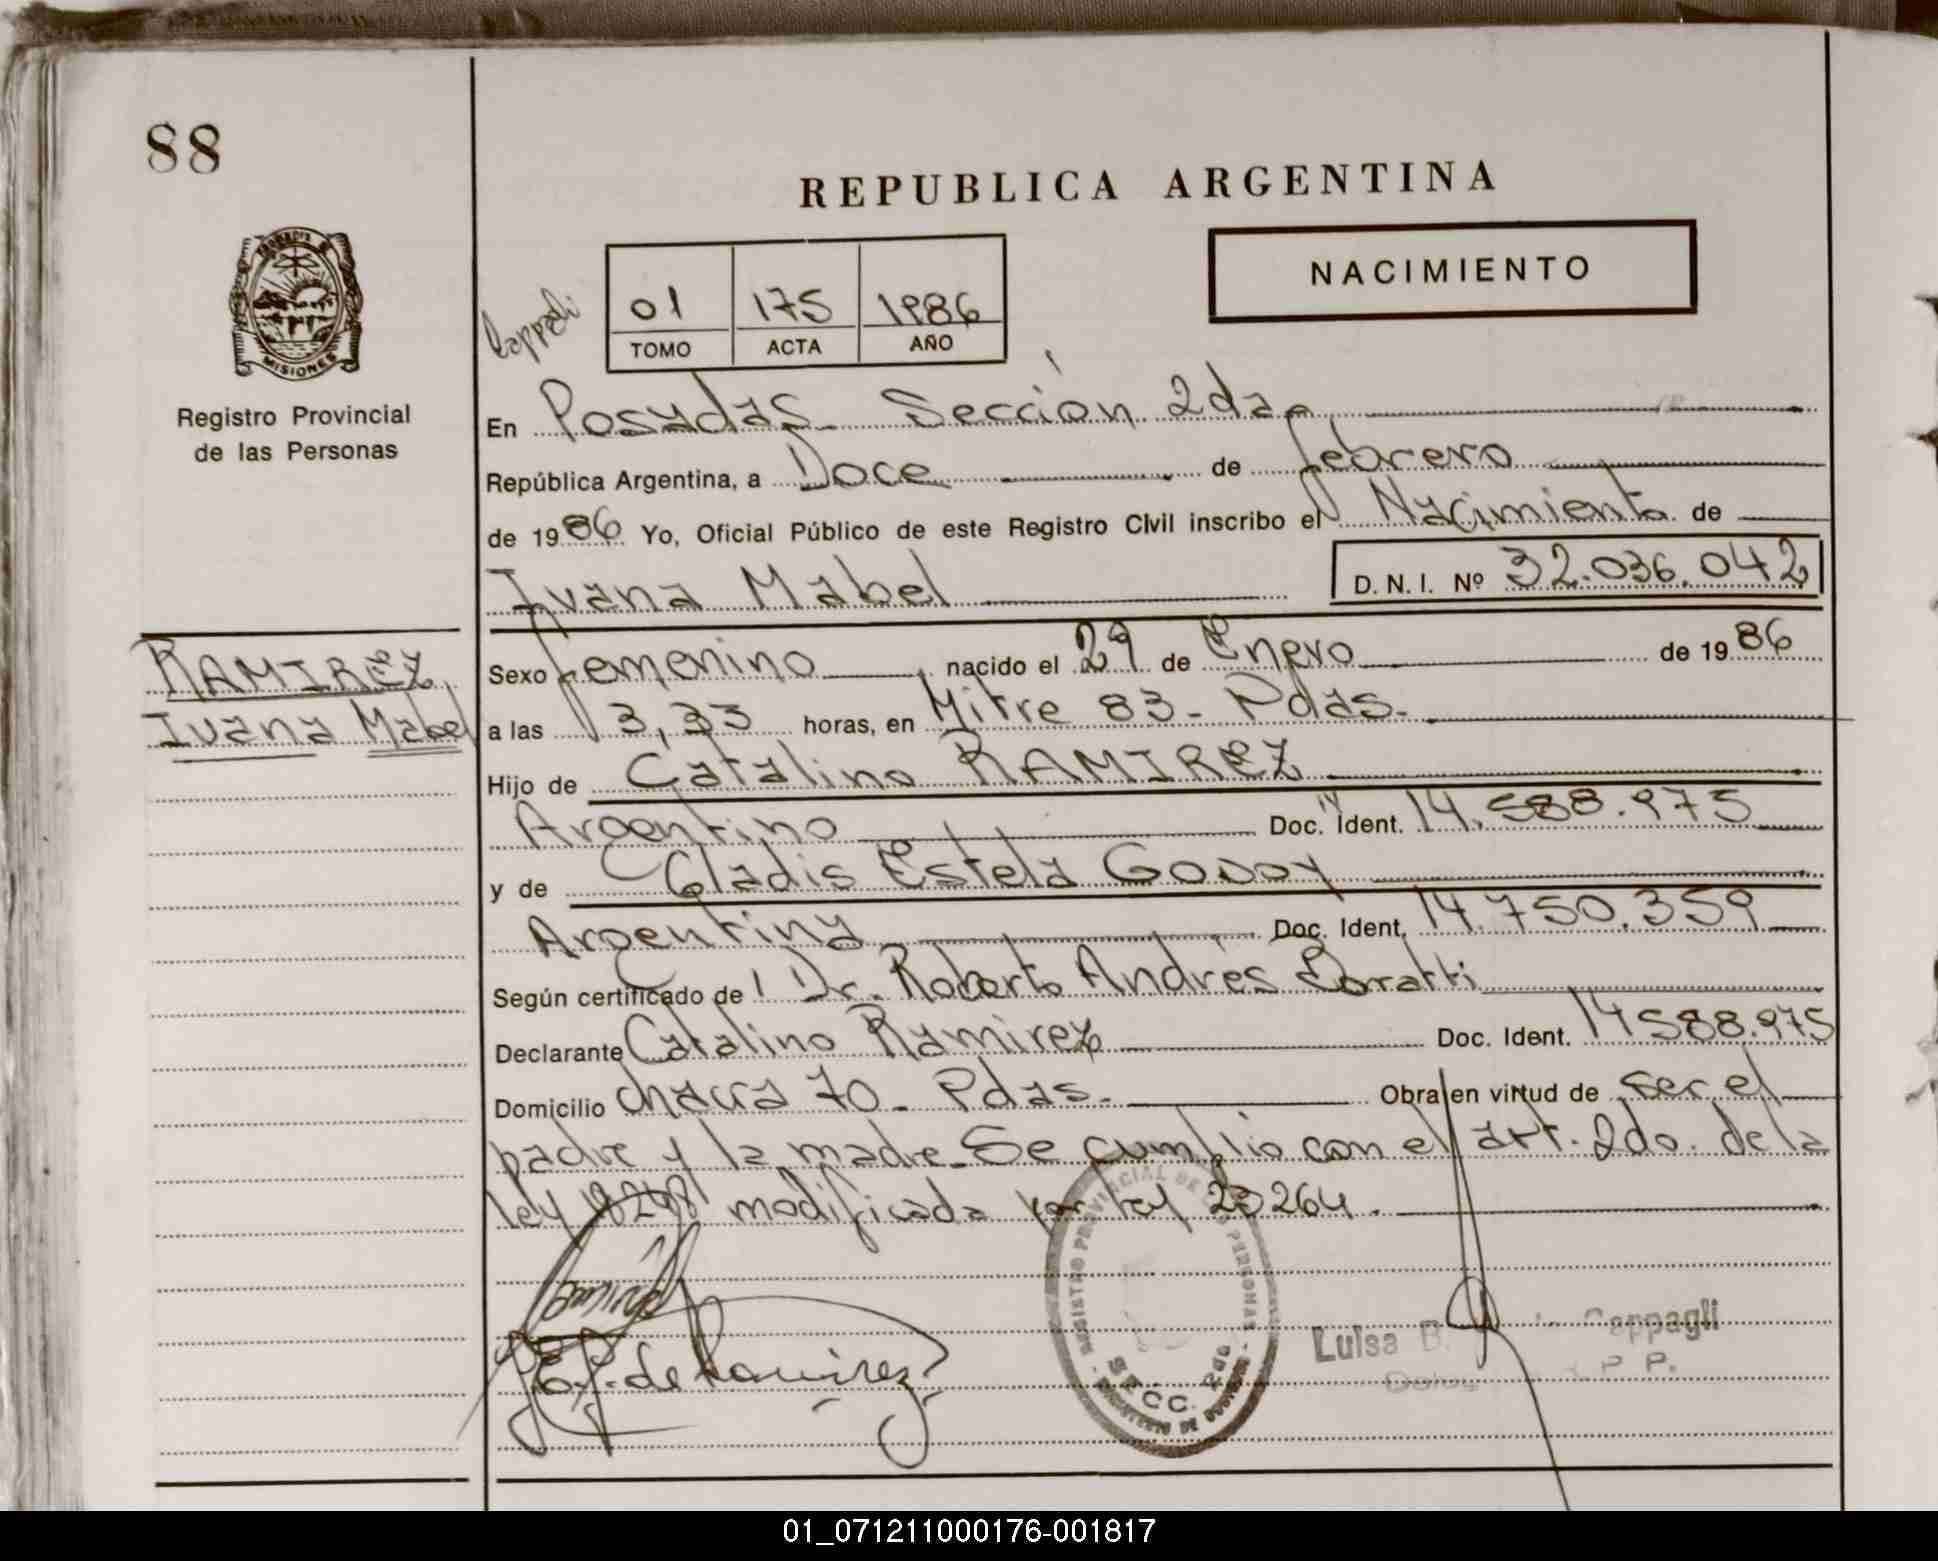 88
REPUBLICA ARGENTINA
NACIMIENTO
PROVINCIA D
MISIONES
Registro Provincial
de las Personas
Cappagli
01 175 1986
TOMO ACTA AÑO
En Posadas - Sección 2da
República Argentina, a Doce de febrero
de 1986 Yo, Oficial Público de este Registro Civil inscribo el Nacimiento de
Ivana Mabel D.N.I. Nº 32.036.042
RAMIREZ,
Ivana Mabel
Sexo femenino, nacido el 29 de Enero de 1986
a las 3,33 horas, en Mitre 83 - Pdas.
Hijo de Catalino RAMIREZ
Argentino Doc. Ident. 14.588.975
y de Gladis Estela GODOY
Argentina Doc. Ident. 14.750.359
Según certificado de Dr. Roberto Andrés
Declarante Catalino Ramirez Doc. Ident. 14 588.975
Domicilio chacra 70 - Pdas. Obra en virtud de ser el
padre y la madre - Se cumplio con el art. 2do. de la
ley 18248 modificada por ley 23264.
REGISTRO PROVINCIAL DE LAS PERSONAS
SECC. 2da
de Ramirez
Luisa B. Cappagli
01_071211000176-001817